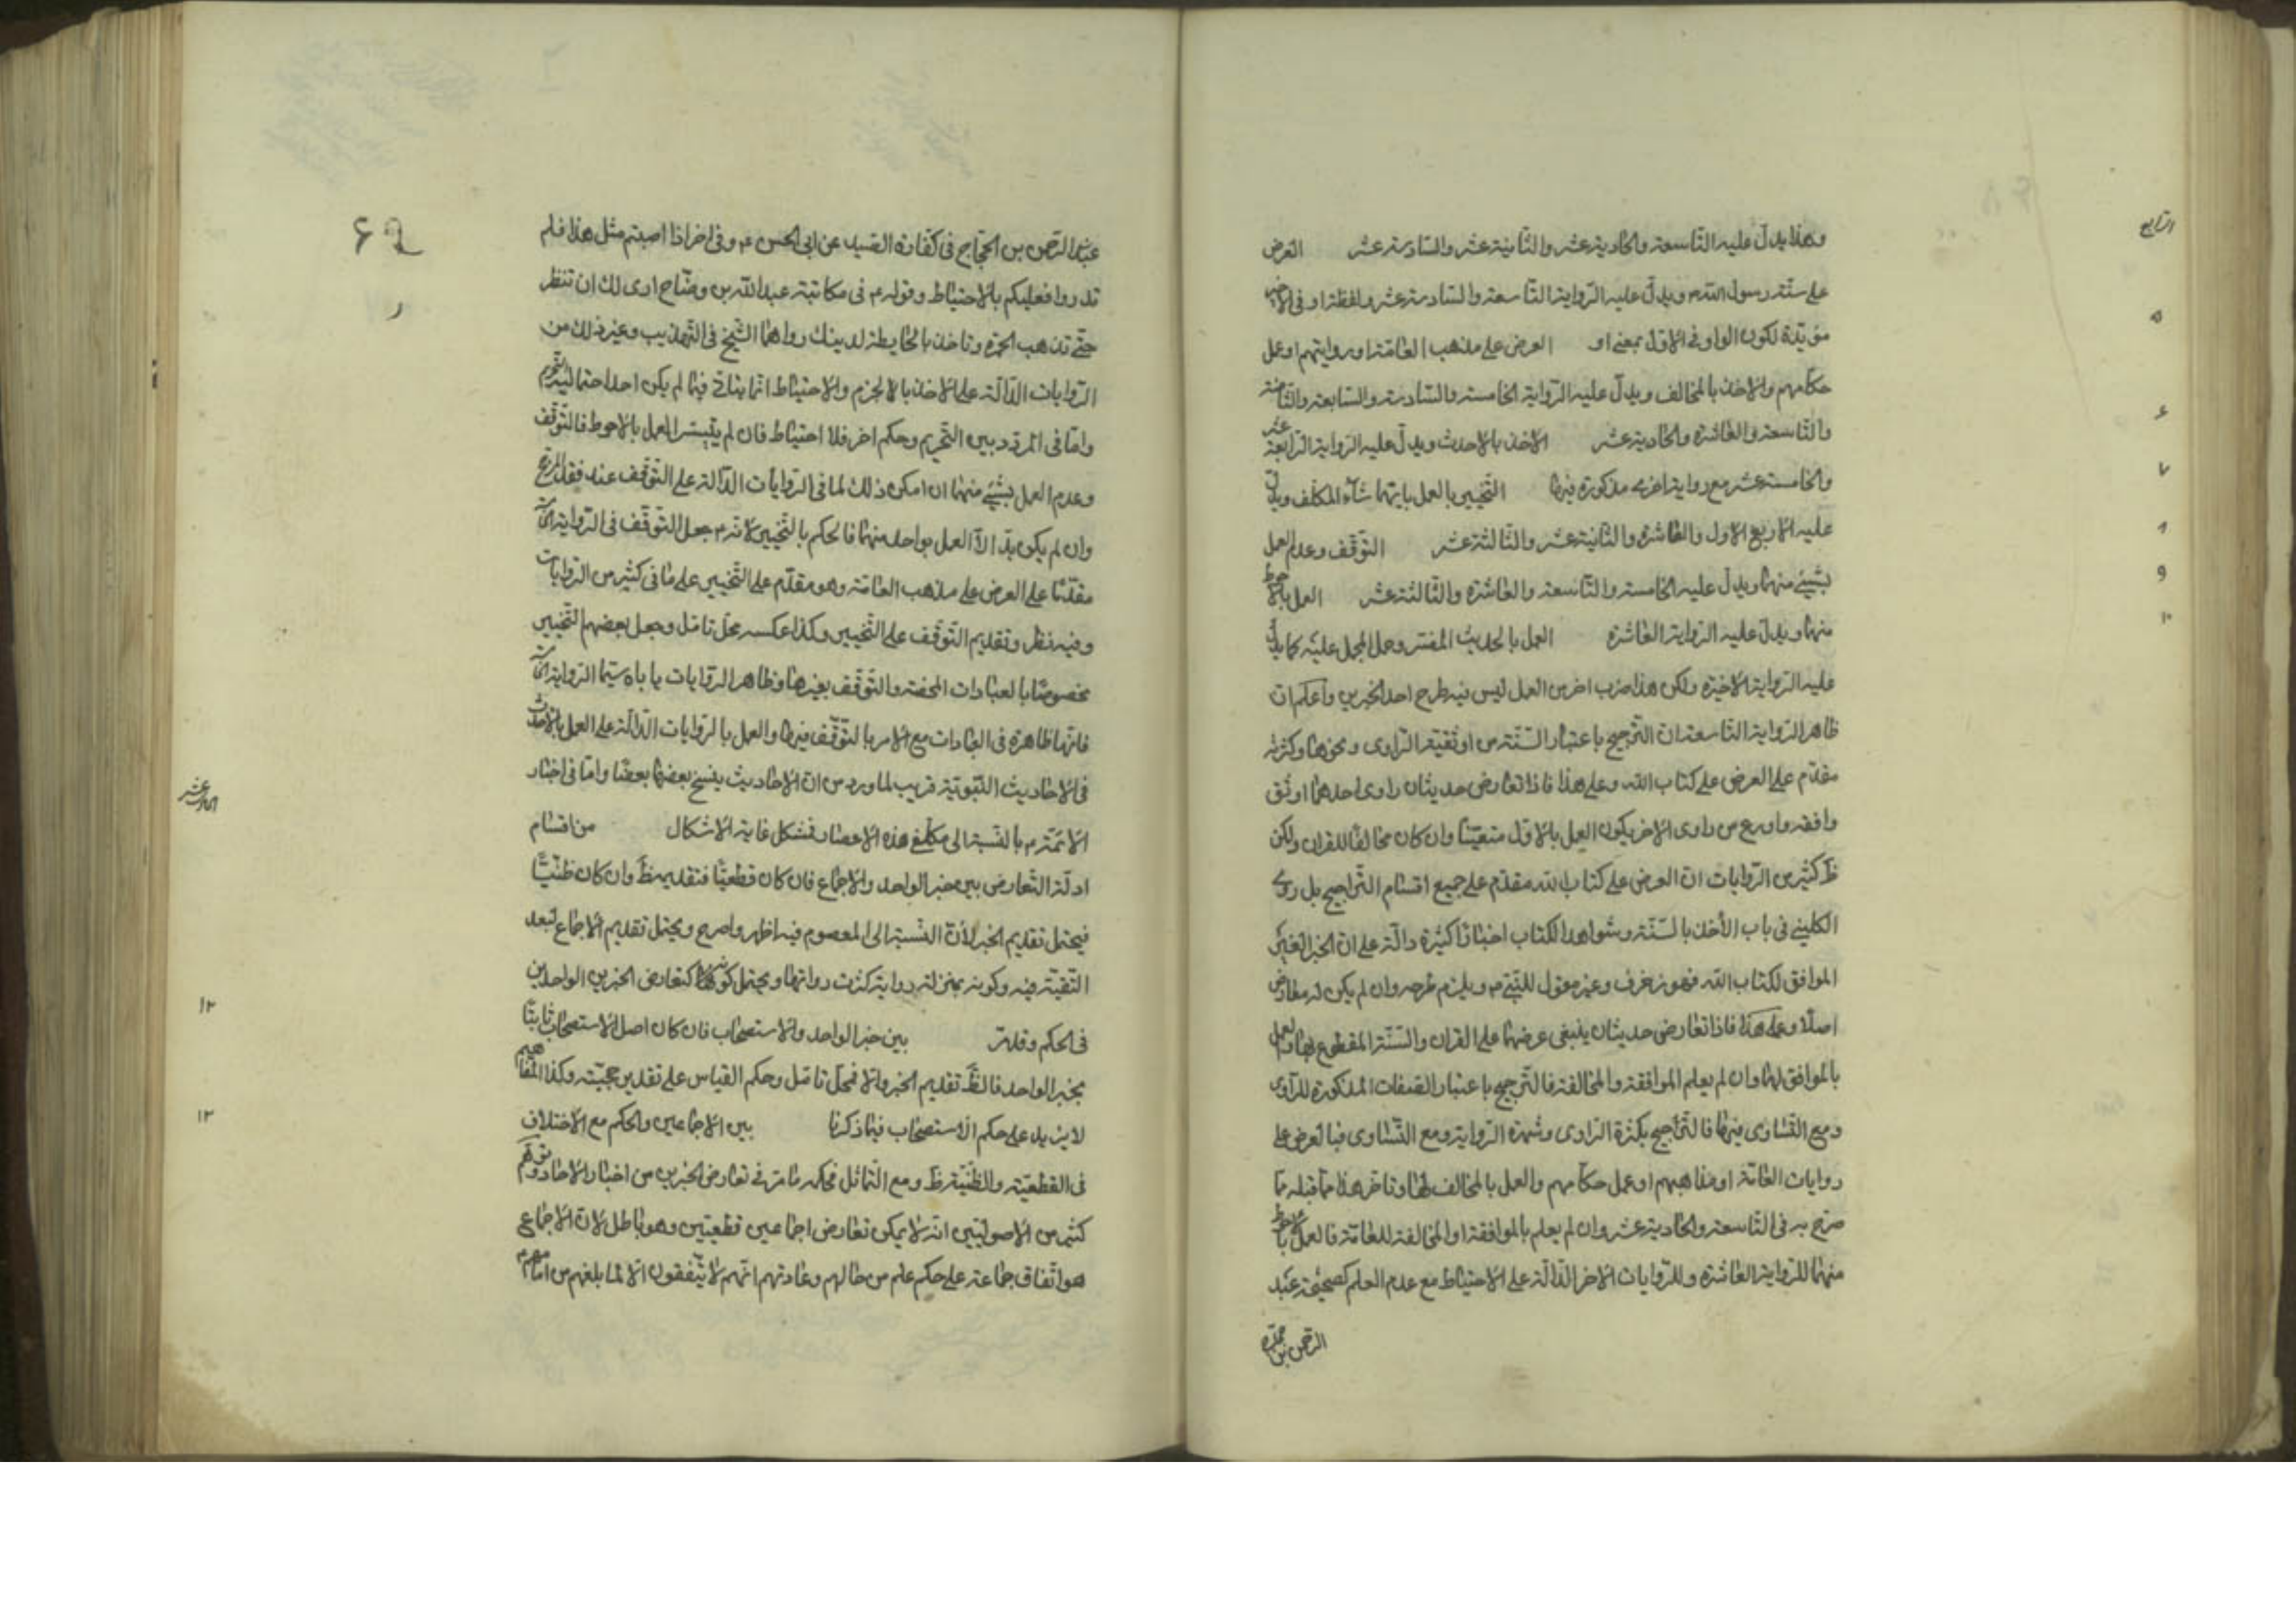 وهذا يدل عليه التاسعة والحادية عشر والثانية عشر والسادسة عشر العرض
الرابع
على سنة رسول الله ص ويدل عليه الرواية التاسعة والسادسة عشر ولفظة او في
مؤيدة لكون الواو في الاول بمعنى او العرض على مذهب العامة او رواياتهم او عمل
٥
حكامهم والاخذ بالمخالف ويدل عليه الرواية الخامسة والسادسة والسابعة والثامنة
والتاسعة والعاشرة والحادية عشر الاخذ بالاحدث ويدل عليه الرواية الرابعة عشر
۶
والخامسة عشر مع رواية اخرى مذكورة فيها التخيير بالعمل بايتهما شاء المكلف ويدل
٧
عليه الاربع الاول والعاشرة والثانية عشر والثالثة عشر التوقف وعدم العمل
٨
بشيء منهما ويدل عليه الخامسة والتاسعة والعاشرة والثالثة عشر العمل بالاحوط
٩
منهما ويدل عليه الرواية العاشرة العمل بالحديث المفسر وحمل المجمل عليه كما يدل
١٠
عليه الرواية الاخيرة ولكن هذا ضرب اخر من العمل ليس فيه طرح احد الخبرين واعلم ان
ظاهر الرواية التاسعة ان الترجيح باعتبار السند من اوثقية الراوى ونحوها وكثرته
مقدم على العرض على كتاب الله وعلى هذا فاذا تعارض حديثان راوى احدهما اوثق
وافقه واورع من راوى الاخر يكون العمل بالاول متعينا وان كان مخالفا للقران ولكن
ظ كثير من الروايات ان العرض على كتاب الله مقدم على جميع اقسام التراجيح بل روى
الكليني في باب الأخذ بالسنة وشواهد الكتاب اخبارا كثيرة دالة على ان الخبر الغير
الموافق لكتاب الله فهو زخرف وغير مقول للنبي ص ويلزم طرحه وان لم يكن له معارض
اصلا وعلى هذا فاذا تعارض حديثان ينبغى عرضهما على القران والسنة المقطوع بها والعمل
بالموافق لهما وان لم يعلم الموافقة والمخالفة فالترجيح باعتبار الصفات المذكورة للراوى
ومع التساوى فيها فالتراجيح بكثرة الراوى وشهرة الرواية ومع التساوى فبالعرض على
روايات العامة او مذاهبهم او عمل حكامهم والعمل بالمخالف لها وتاخر هذا عما قبله مما
صرح به في التاسعة والحادية عشر وان لم يعلم بالموافقة او المخالفة للعامة فالعمل بالاحوط
منهما للرواية العاشرة وللروايات الاخر الدالة على الاحتياط مع عدم العلم كصحيحة عبد
الرحمن بن
۶۹
عبد الرحمن بن الحجاج في كفارة الصيد عن ابى الحسن ع وفي اخر اذا اصبتم مثل هذا فلم
تدروا فعليكم بالاحتياط وقوله ع في مكاتبة عبد الله بن وضاح ارى لك ان تنتظر
حتى تذهب الحمرة وتاخذ بالحايطة لدينك رواهما الشيخ في التهذيب وغير ذلك من
الروايات الدالة على الاخذ بالجزم والاحتياط انما يتاتى فيما لم يكن احد احتماليه التحريم
واما في المردد بين التحريم وحكم اخر فلا احتياط فان لم يتيسر العمل بالاحوط فالتوقف
وعدم العمل بشئ منهما ان امكن ذلك لما في الروايات الدالة على التوقف عند فقد المرجح
وان لم يكن بد الا العمل بواحد منهما فالحكم بالتخيير لانه ع جعل التوقف في الرواية
مقدما على العرض على مذهب العامة وهو مقدم على التخيير على ما في كثير من الروايات
وفيه نظر وتقديم التوقف على التخيير وكذا عكسه محل تامل وجعل بعضهم التخيير
مخصوصا بالعبادات المحضة والتوقف بغيرها وظاهر الروايات ياباه سيما الرواية
فانها ظاهرة في العبادات مع الامر بالتوقف فيها والعمل بالروايات الدالة على العمل بالاحدث
في الاحاديث النبوية قريب لما ورد من ان الاحاديث ينسخ بعضها بعضا واما في اخبار
الائمة ع بالنسبة الى مكلفى هذه الاعصار فمشكل غاية الاشكال من اقسام
الحادى عشر
ادلة التعارض بين خبر الواحد والاجماع فان كان قطعيا فتقديمه ظ وان كان ظنيا
فيحتمل تقديم الخبر لأن النسبة الى المعصوم فيه اظهر واصرح ويحتمل تقديم الاجماع لبعد
التقية فيه وكونه بمنزلة رواية كثرت رواتها ويحتمل كونهما كتعارض الخبرين الواحدين
في الحكم وقلة بين خبر الواحد والاستصحاب فان كان اصل الاستصحاب ثابتا
١٢
بخبر الواحد فالظ تقديم الخبر والا فمحل تامل وحكم القياس على تقدير حجيته وكذا المفاهيم
لا يزيد على حكم الاستصحاب فيما ذكرنا بين الاجماعين والحكم مع الاختلاف
١٣
في القطعية والظنية ظ ومع التماثل فحكمه ما مر في تعارض الخبرين من اخبار الاحاد وتوهم
كثير من الاصوليين انه لا يمكن تعارض اجماعين قطعيين وهو باطل لان الاجماع
هو اتفاق جماعة على حكم علم من حالهم وعادتهم انهم لا يتفقون الا لما بلغهم من امامهم